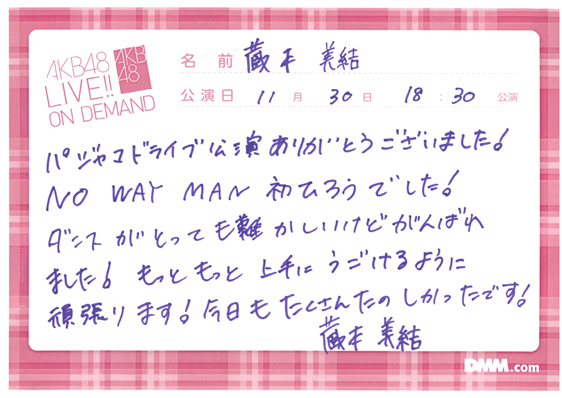 AKB48
LIVE!!
ON DEMAND
AKB
48
名前 蔵本 美結
公演日 11月 30日 18:30 公演
パジャマドライブ公演ありがとうございました!
NO WAY MAN 初ひろうでした!
ダンスがとっても難かしいけどがんばれ
ました! もっともっと上手にうごけるように
頑張ります! 今日もたくさんたのしかったです!
蔵本 美結
DMM.com